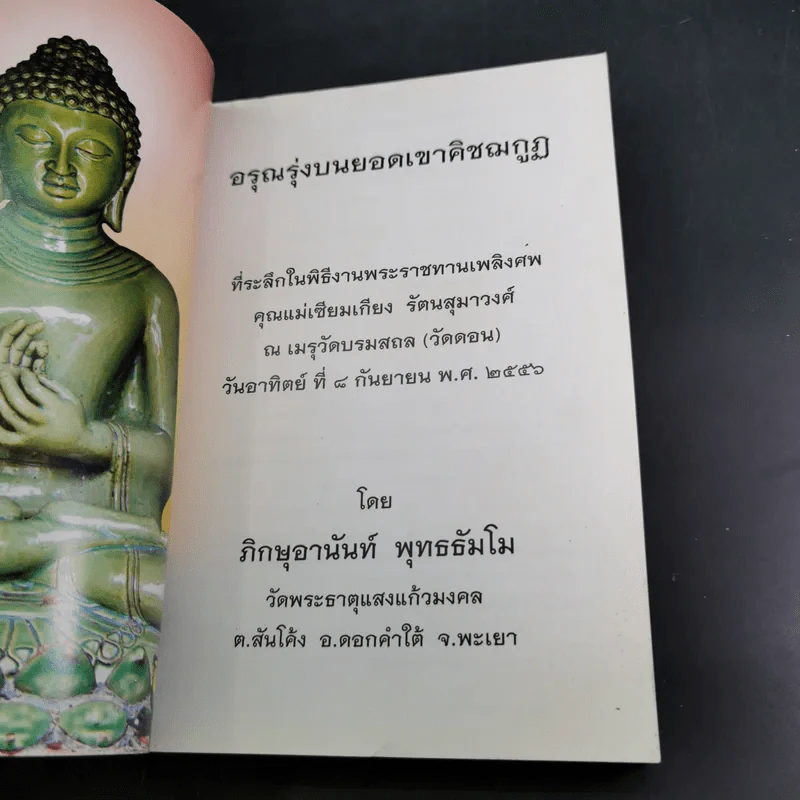 อรุณรุ่งบนยอดเขาคิชฌกูฏ
ที่ระลึกในพิธีงานพระราชทานเพลิงศพ
คุณแม่เซียมเกียง รัตนสุมาวงศ์
ณ เมรุวัดบรมสถล (วัดดอน)
วันอาทิตย์ ที่ ๘ กันยายน พ.ศ. ๒๕๕๖
โดย
ภิกษุอานันท์ พุทธธัมโม
วัดพระธาตุแสงแก้วมงคล
ต.สันโค้ง อ.ดอกคำใต้ จ.พะเยา